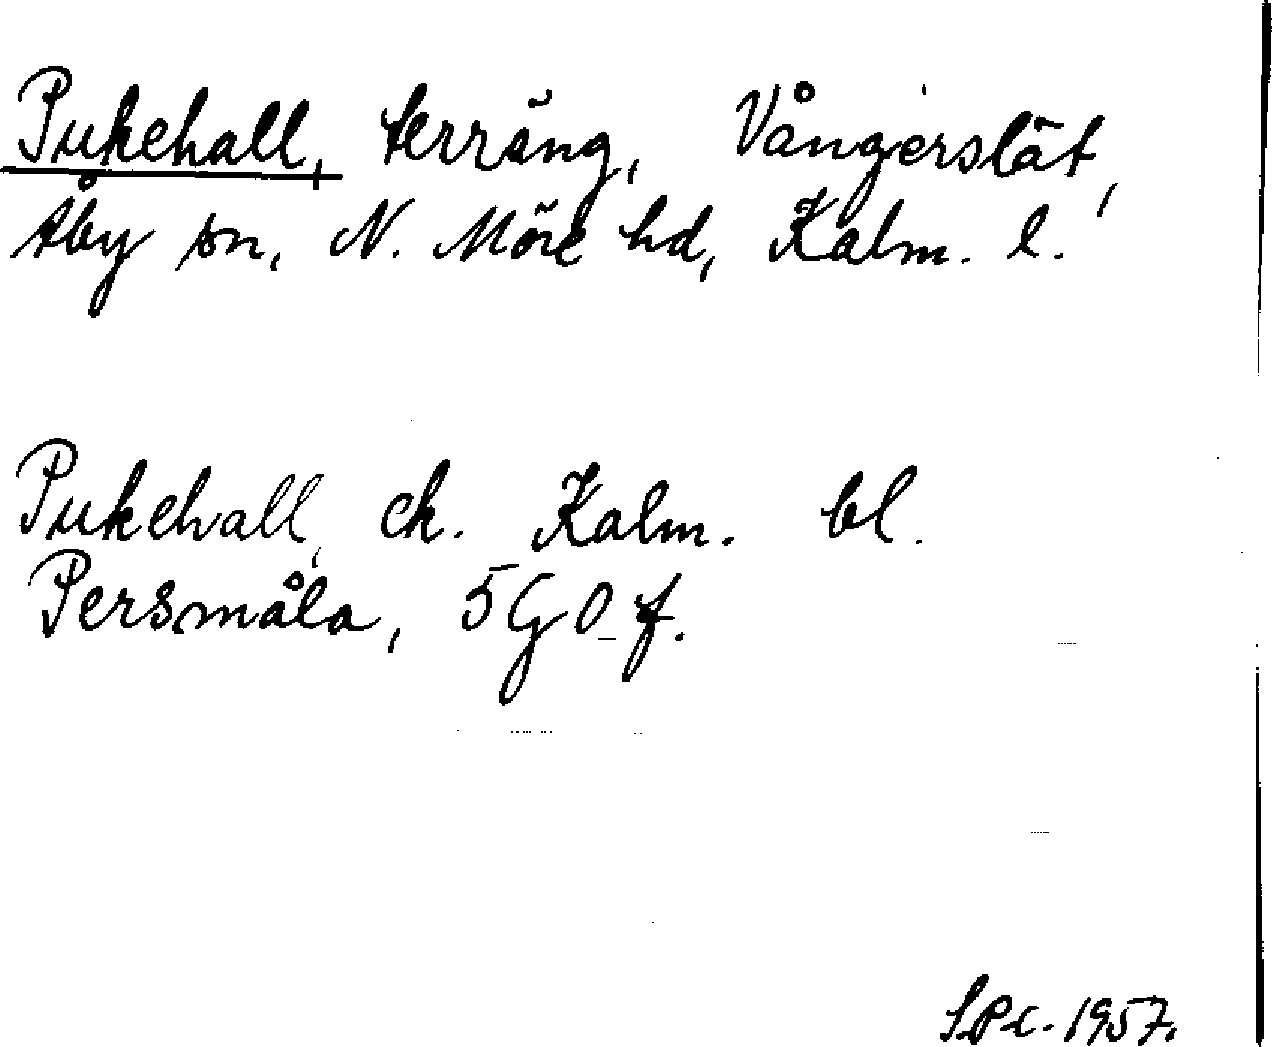 Pukehall, terräng, Vångerslät,
Åby sn, N. Möre hd, Kalm. l.
Pukehall, ek. Kalm. bl.
Persmåla, 5G0f.
SPC. 1957.